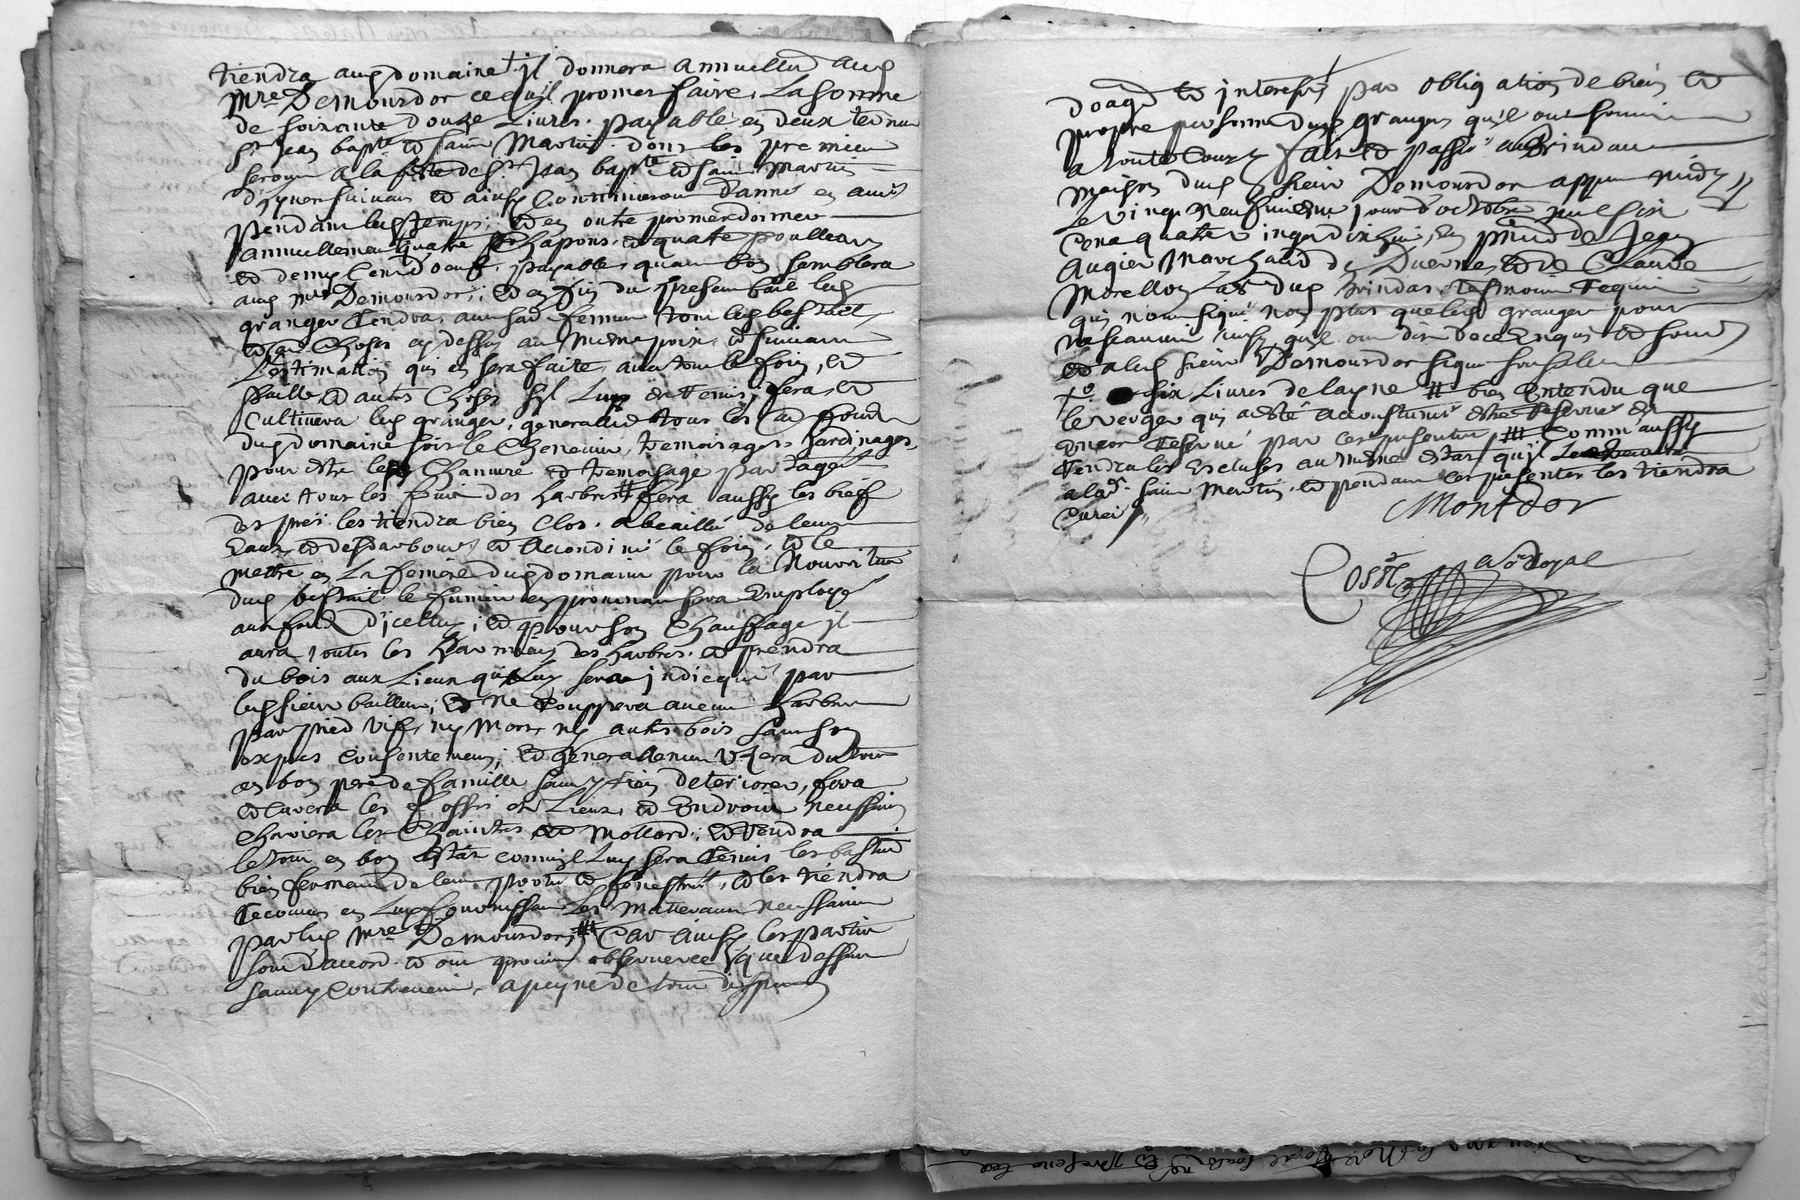 tiendra aud domaine il donnera annuellem aud
Mre Demourdor ce quil promet faire, La somme
de soixante douze Livres payable en deux termes
St Jean bapte et saint Martin dont les premiers
seront a la feste de St Jean bapte et saint Martin
et ainsy continueront d'année en année
pendant led temps; et en outre promet donner
annuellement quatre chapons et quatre poullets
et demy cent d'oeufs payables quant bon semblera
aud Mre Demourdor; et en fin du present bail led
granger rendra aud sa ferme tout led bestail
et choses cy dessus au mesme prix et suivant
L'estimation qui en sera faite avec tout le foin, et
paille et autres choses sil Luy en remis, fera et
cultivera led granger, generallem tous les fonds
dud domaine soit le chenevier, tremoisages jardinages
pour estre led chanvre et tremoisage partagés
avec tous les fruits des harbres fera aussy les bief
des prés les tiendra bien clos abeaillé de leurs
eaux et desdarbonné et accondira le foin, et le
mettre en La feniere dud domaine pour la nourriture
dud bestail le fumier en provenant sera employé
aux fonds d'icelluy; et pour son chauffage jl
aura toutes les des harbres et prendra
du bois aux Lieux qui Luy sera jndicqué par
led sieur bailleur; et ne couppera aucun harbre
par pied vif, ny mort, ny autre bois sans son
expres consentement; et generallement usera du tout
en bon pere de famille sans y rien deteriorer, fera
et curera les fossés et Lieux et endroits necessaires
chariera les chaintres et mollard; et rendra
le tout en bon estat comm'jl Luy sera remis les bastim
bien fermant de leurs portes et fenestres, et les tiendra
recouvers en Luy fournissant Les matteriaux necessaires
par led Mre Demourdor, Car ainsy les parties
sont d'accord et ont promis observer ce que dessus
sans y contrevenir, a peyne de tous despens
domages et jnterests par obligation de biens et
propre personne dud granger qu'il ont soumis
a toutes Cours fait et passé aud Brindas
maison dud sieur Demourdor apres midy
Le vingt neufviesme jour d'octobre mil six
cent quatre vingt dix huit, En presence de Jean
Augier marchand de Duerne, et de Claude
Morellon Lab dud Brindas tesmoins requis
qui n'ont signé non plus que led granger pour
ne scavoir ainsy quil ont dit de ce enquis et sommés
et a led sieur Demourdor signé
six Livres de layne # bien entendu que
le verger qui a esté accoustumé estre reservé est
encor reservé par ces presentes # comm'aussy
rendra les escluses au mesme estat qu'jl
a lad saint Martin et pendant ces presentes les tiendra
curei
Montdor
Coste No Royal